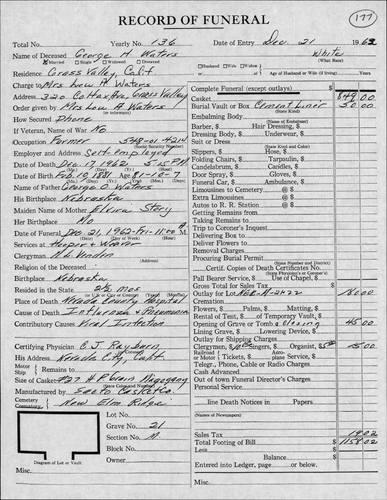 177
RECORD OF FUNERAL
Total No. Yearly No. 136 Date of Entry Dec. 21 1962
Name of Deceased George H. Waters White
Married Single Widowed Divorced (What Race)
Residence Grass Valley, Calif Husband Wife Widow of
Charge to Mrs Lew A Waters or Age of Husband or Wife (if living) Years
Address 320 Colfax Ave, Grass Valley
Order given by Mrs Lew A. Waters
(or informant)
How Secured Phone
If Veteran, Name of War No
Occupation Farmer 548-01-4214
(Social Security Number)
Employer and Address Self employed
Date of Death Dec. 17, 1962 5-15 P.M
Date of Birth Feb. 10, 1881 Age 81-10-7
Name of Father George O. Waters
His Birthplace Nebraska
Maiden Name of Mother Elvira Story
Her Birthplace No
Date of Funeral Dec 21, 1962-Fri-11:00 A.M
Services at Hooper & Weaver
Clergyman
Religion of the Deceased
Birthplace Nebraska
Resided in the State 2 1/2 Mos
(or U.S. or City or County) (Years)
Place of Death Nevada County Hospital
Cause of Death Influenza & Pneumonia
Contributory Causes Viral Infection
Certifying Physician C J. Rayburn
His Address Nevada City, Calif
Motor
Rail Ship Remains to
Size of Casket #27 H P Plain Mahogany
Manufactured by Casket Co.
Cemetery
Crematory New Elm Ridge
Lot No.
Grave No. 21
Section No. A
Block No.
Owner
Diagram of Lot or Vault
Misc.
Complete Funeral (except outlays)
Casket 849 00
Burial Vault or Box Cement Liner 50 00
(State Kind)
Embalming Body
Barber, $ Hair Dressing, $
Dressing Body, $ Underwear, $
Suit or Dress
(State Kind and Color)
Slippers, $ Hose, $
Folding Chairs, $ Tarpaulin, $
Candelabrum, $ Candles, $
Door Spray, $ Gloves, $
Funeral Car, $ Ambulance, $
Limousines to Cemetery @ $
Extra Limousines @ $
Autos to R. R. Station @ $
Getting Remains from
Taking Remains to
Trip to Coroner's Inquest
Delivering Box to
Deliver Flowers to
Removal Charges
Procuring Burial Permit
(State Number and District)
Certif. Copies of Death Certificates No.
(State Physician's or Coroner's)
Pall Bearer Service, $ Use of Chapel, $
Gross Total for Sales Tax $
Outlay for Lot 180 00
Cremation
Flowers, $ Palms, $ Matting, $
Rental of Tent, $ of Temporary Vault, $
Opening of Grave or Tomb & closing 45 00
Lining Grave, $ Lowering Device, $
Outlay for Shipping Charges
Clergyman, $10 Singers, $ Organist, $5 15 00
Railroad
Aero or Motor Tickets, $ Aero or Auto Service, $
Telegr., Phone, Cable or Radio Charges
Cash Advanced
Out of town Funeral Director's Charges
Personal Service
line Death Notices in Papers
(Names of Newspapers)
Sales Tax 19 02
Total Footing of Bill 1158 02
Less
Balance
Entered into Ledger, page or below
Misc.